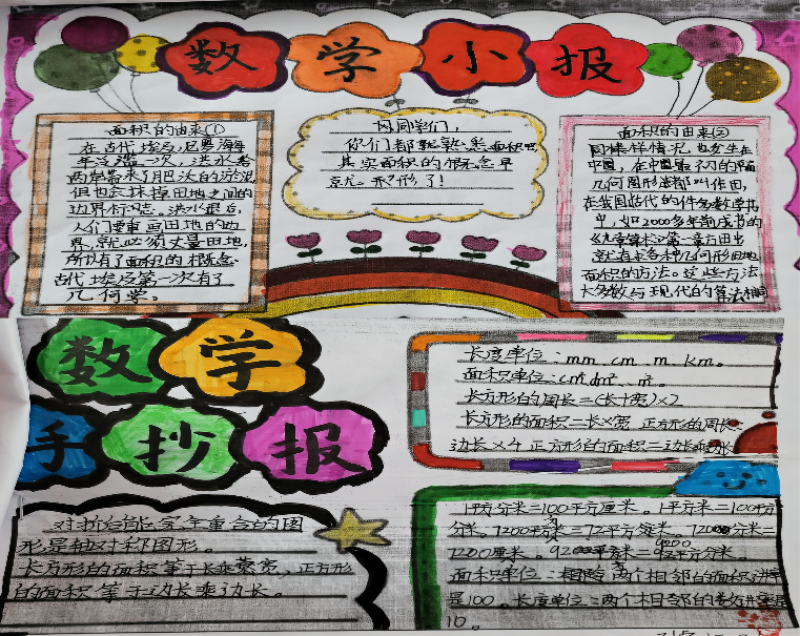 数学小报
面积的由来①
在古代埃及,尼罗河每
年泛滥一次,洪水给
两岸带来了肥沃的淤泥
但也会抹掉田地之间的
边界标志。洪水退后,
人们要重画田地的边
界,就必须丈量田地,
所以有了面积的概念
古代埃及第一次有了
几何学。
同学们,
你们都熟悉面积吧
其实面积的概念早
就形成了!
面积的由来②
同样情况,也发生在
中国,在中国最初的
几何图形法都叫作田,
在我国
中,如2000多年前成书的
《九章算术》第一章方田中
就有求各种几何形田地
面积的方法。这些方法
大多数与现代的算法相同
数学
手抄报
长度单位:mm cm m km。
面积单位:cm² dm² m²。
长方形的周长=(长+宽)×2
长方形的面积=长×宽,正方形的周长
边长×4 正方形的面积=边长乘边长
对折后能完全重合的图
形是轴对称图形。
长方形的面积等于长乘宽,正方形
的面积等于边长乘边长。
1平方分米=100平方厘米。1平方米=100平方
分米。7200平方米
面积单位:相邻两个相邻的面积进率
是100。长度单位:两个相邻的进率是
10。